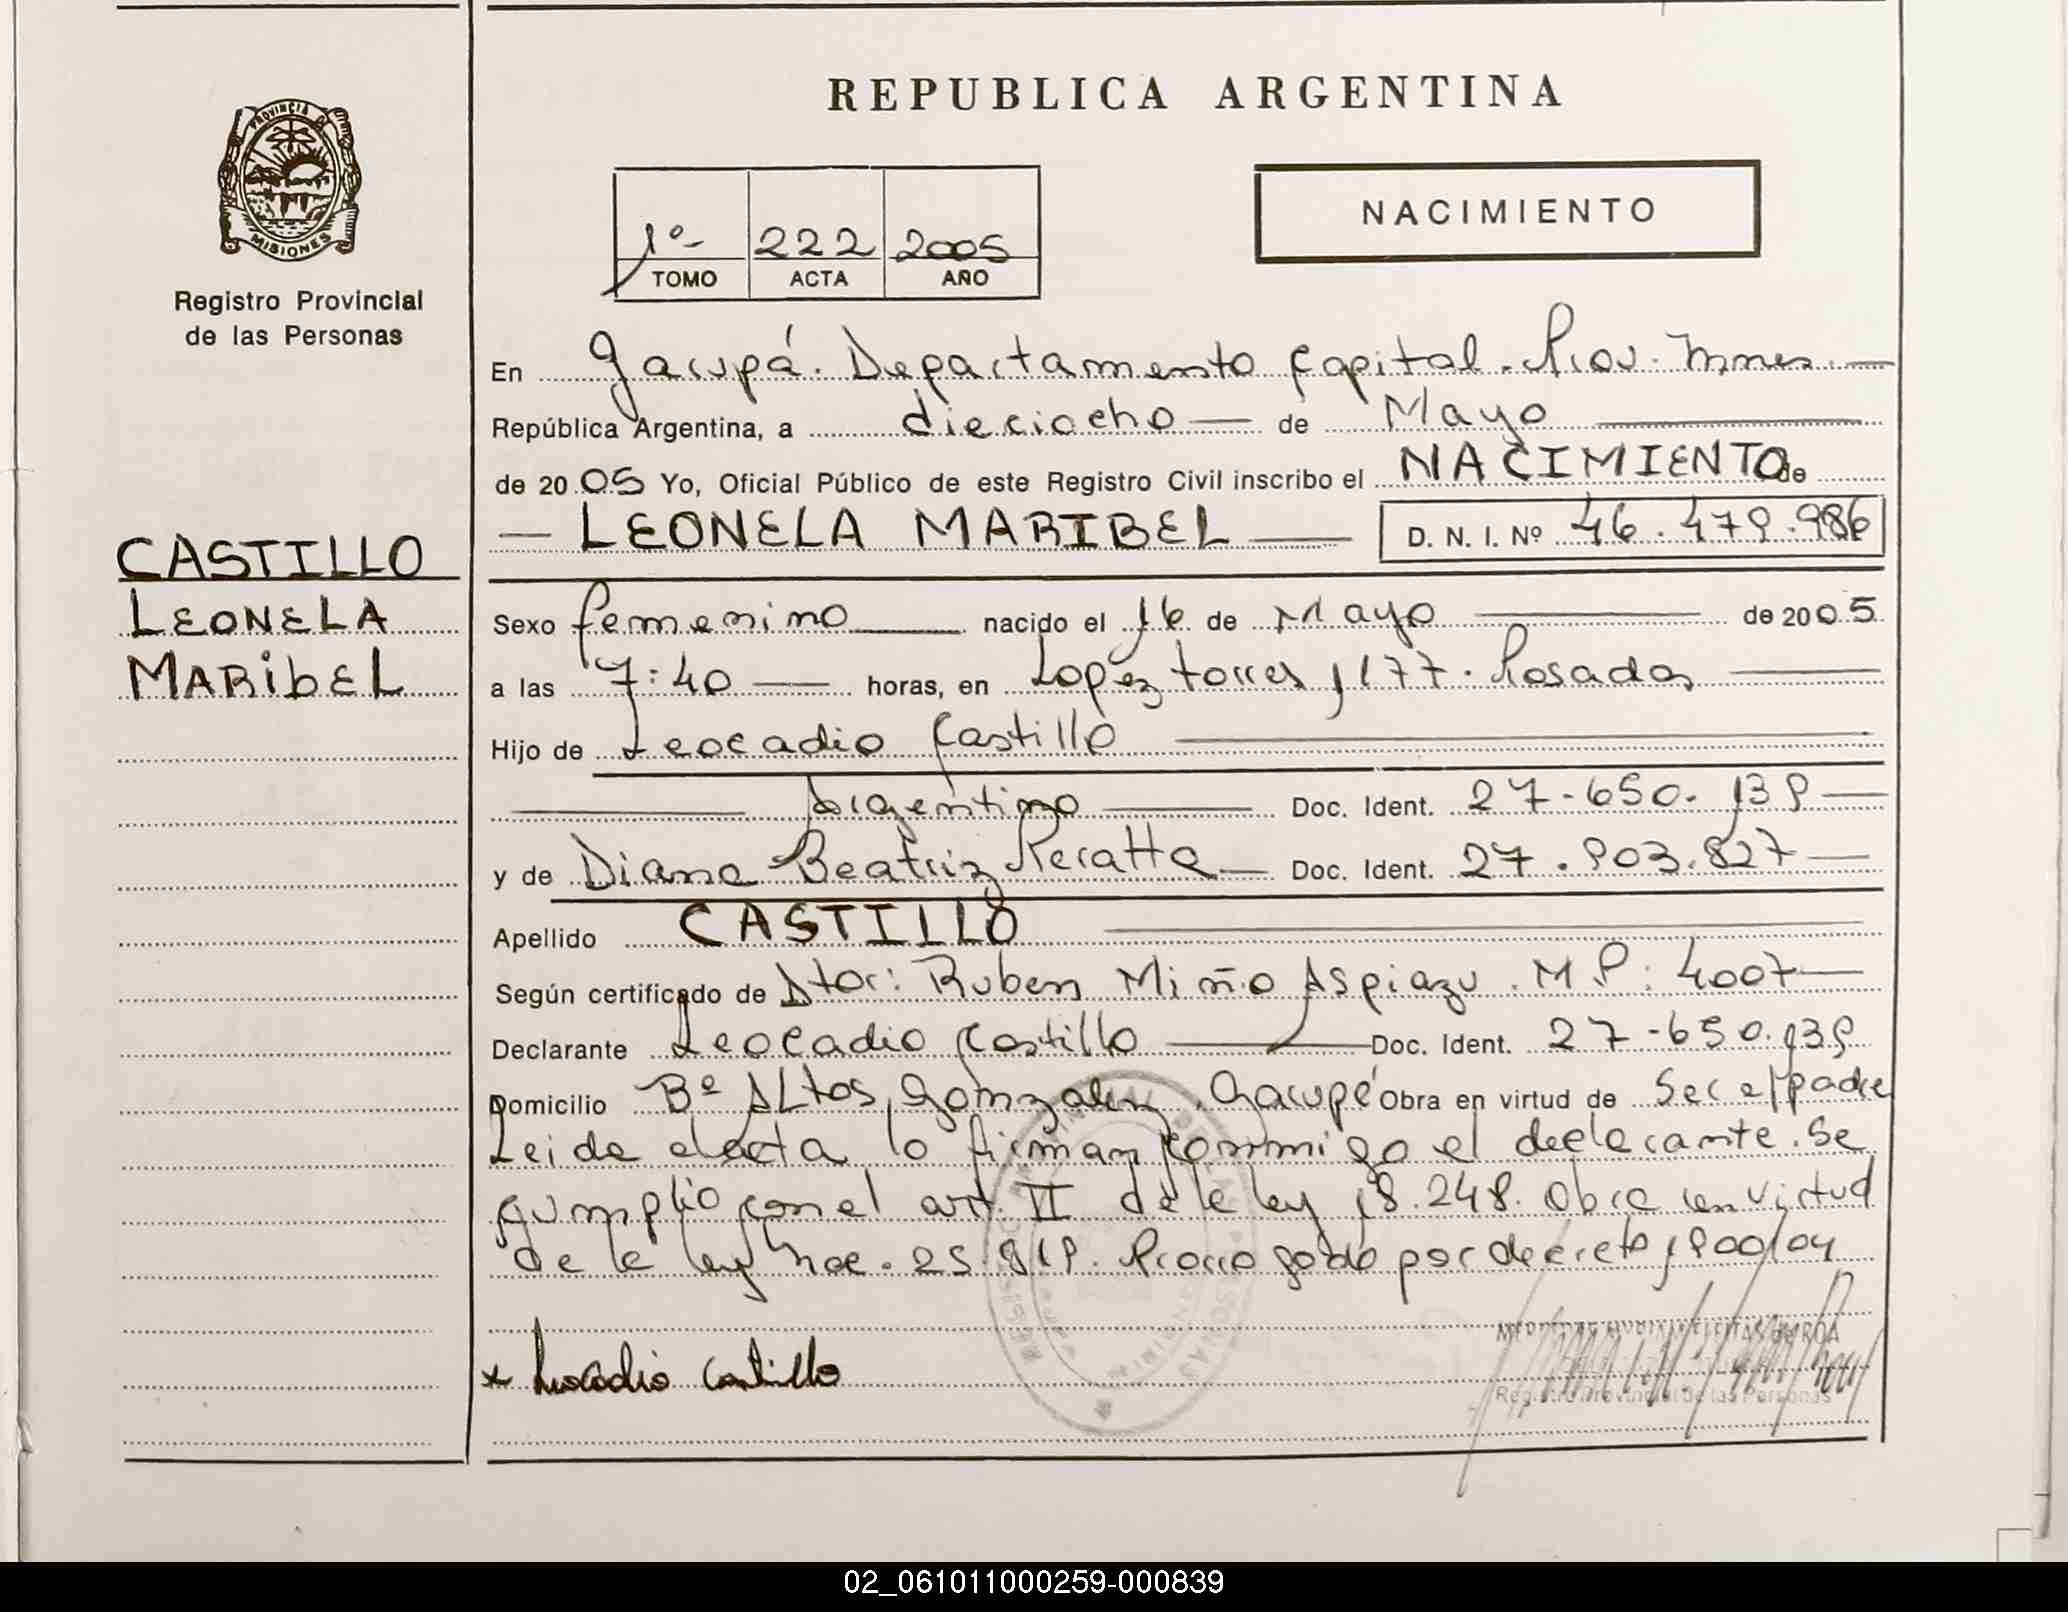 REPUBLICA ARGENTINA
PROVINCIA D
MISIONES
Registro Provincial
de las Personas
1º 222 2005
TOMO ACTA AÑO
NACIMIENTO
En Garupá. Departamento Capital. Prov. Mnes.
República Argentina, a dieciocho de Mayo
de 2005 Yo, Oficial Público de este Registro Civil inscribo el NACIMIENTO de
LEONELA MARIBEL D. N. I. Nº 46.479.986
CASTILLO
LEONELA
MARIBEL
Sexo femenino nacido el 16 de Mayo de 2005
a las 7:40 horas, en Lopez torres 1177. Posadas
Hijo de Leocadio Castillo
Argentino Doc. Ident. 27-650.139
y de Diana Beatriz Peratta Doc. Ident. 27.903.827
Apellido CASTILLO
Según certificado de Dtor: Ruben Miño Aspiazu. M.P: 4007
Declarante Leocadio Castillo Doc. Ident. 27-650.139
Domicilio Bº Altos Gonzalez, Garupá Obra en virtud de Ser el padre
Leida el acta lo firman conmigo el declarante. Se
cumplio con el art. II de la ley 18.248. Obra en virtud
de la ley nac. 25.819. Prorrogado por decreto 1900/04
x Leocadio Castillo
Registro Provincial de las Personas
02_061011000259-000839